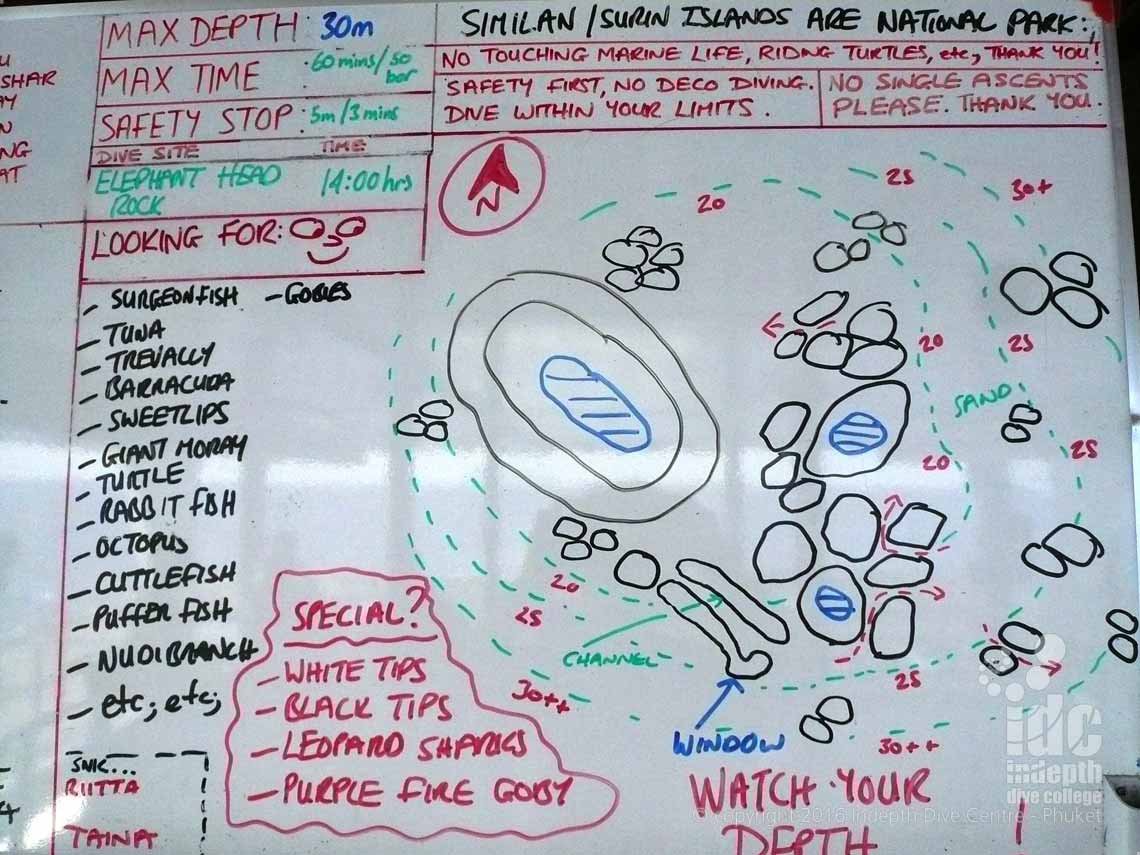 MAX DEPTH : 30m
MAX TIME : 60 mins/50 bar
SAFETY STOP : 5m/3mins
DIVE SITE TIME
ELEPHANT HEAD ROCK 14:00hrs
LOOKING FOR:
SIMILAN/SURIN ISLANDS ARE NATIONAL PARK:,
NO TOUCHING MARINE LIFE, RIDING TURTLES, etc, THANK YOU!
SAFETY FIRST, NO DECO DIVING.
DIVE WITHIN YOUR LIMITS.
NO SINGLE ASCENTS
PLEASE. THANK YOU.
SHAR
NG
AT
N
- SURGEONFISH - GOBIES
- TUNA
- TREVALLY
- BARRACUDA
- SWEETLIPS
- GIANT MORAY
- TURTLE
- RABBIT FISH
- OCTOPUS
- CUTTLEFISH
- PUFFER FISH
- NUDIBRANCH
- etc; etc;
SPECIAL?
- WHITE TIPS
- BLACK TIPS
- LEOPARD SHARKS
- PURPLE FIRE GOBY
SNK...
RIITTA
TAINA
20
25
30+
20
25
SAND
20
25
20
25
30++
CHANNEL
25
30++
WINDOW
WATCH YOUR
DEPTH !
idc
indepth
dive college
© Copyright 2016 Indepth Dive Centre - Phuket